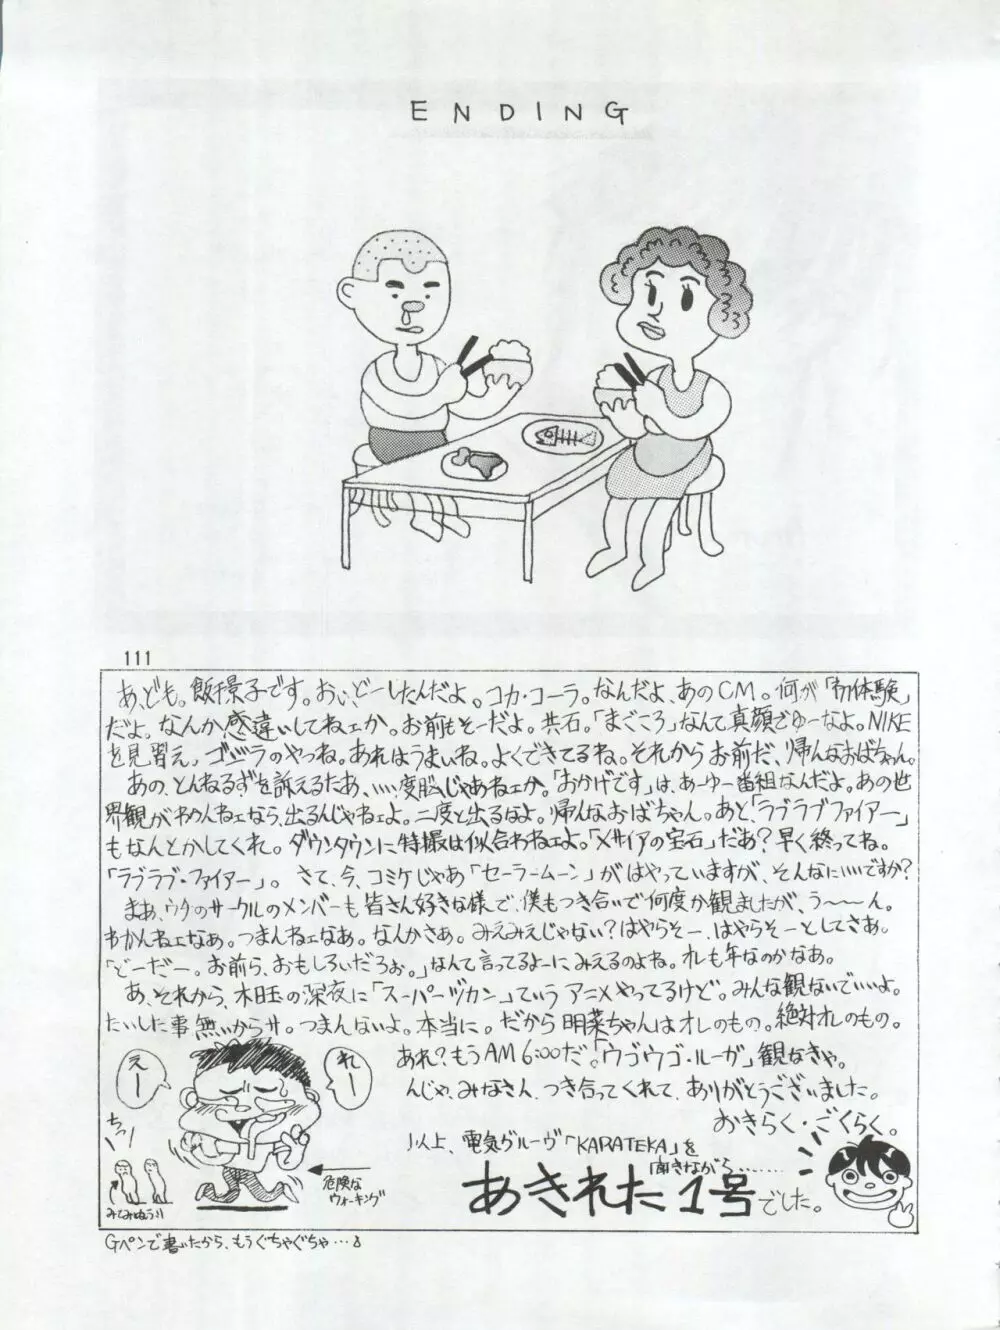 ENDING
111
あ、ども。飯干景子です。おい、どーしたんだよ。コカ・コーラ。なんだよ、あのCM。何が「初体験」
だよ。なんか感違いしてねェか。お前もそーだよ。共石。「まごころ」なんて真顔でゆーなよ。NIKE
を見習え。ゴジラのやつね。あれはうまいね。よくできてるね。それからお前だ、帰んなおばちゃん。
あの、とんねるずを訴えるたあ、いい度胸じゃねェか。「おかげです」は、あーゆー番組なんだよ。あの世
界観がわかんねェなら、出るんじゃねェよ。二度と出るなよ。帰んなおばちゃん。あと、「ラブラブファイアー」
もなんとかしてくれ。ダウンタウンに特撮は似合わねェよ。「メサイアの宝石」だあ？早く終ってね。
「ラブラブ・ファイアー」。さて、今、コミケじゃあ「セーラームーン」がはやっていますが、そんなにいいですか？
まあ、ウチのサークルのメンバーも皆さん好きな様で、僕もつき合いで何度か観ましたが、う〜〜ん。
わかんねェなあ。つまんねェなあ。なんかさあ。みえみえじゃない？はやらそー、はやらそーとしてさあ。
「どーだー。お前ら、おもしろいだろぉ。」なんて言ってるよーにみえるのよね。オレも年なのかなあ。
あ、それから、木曜の深夜に「スーパーヅカン」ていうアニメやってるけど。みんな観ないでいいよ。
たいした事無いからサ。つまんないよ。本当に。だから明菜ちゃんはオレのもの。絶対オレのもの。
あれ？もうAM6:00だ。「ウゴウゴ・ルーガ」観なきゃ。
んじゃ、みなさん、つき合ってくれて、ありがとうございました。
おきらく・ごくらく。
以上、電気グルーヴ「KARATEKA」を
聞きながら………
あきれた1号でした。
えー
れー
ちっ
危険な
ウォーキング
Gペンで書いたから、もうぐちゃぐちゃ…。